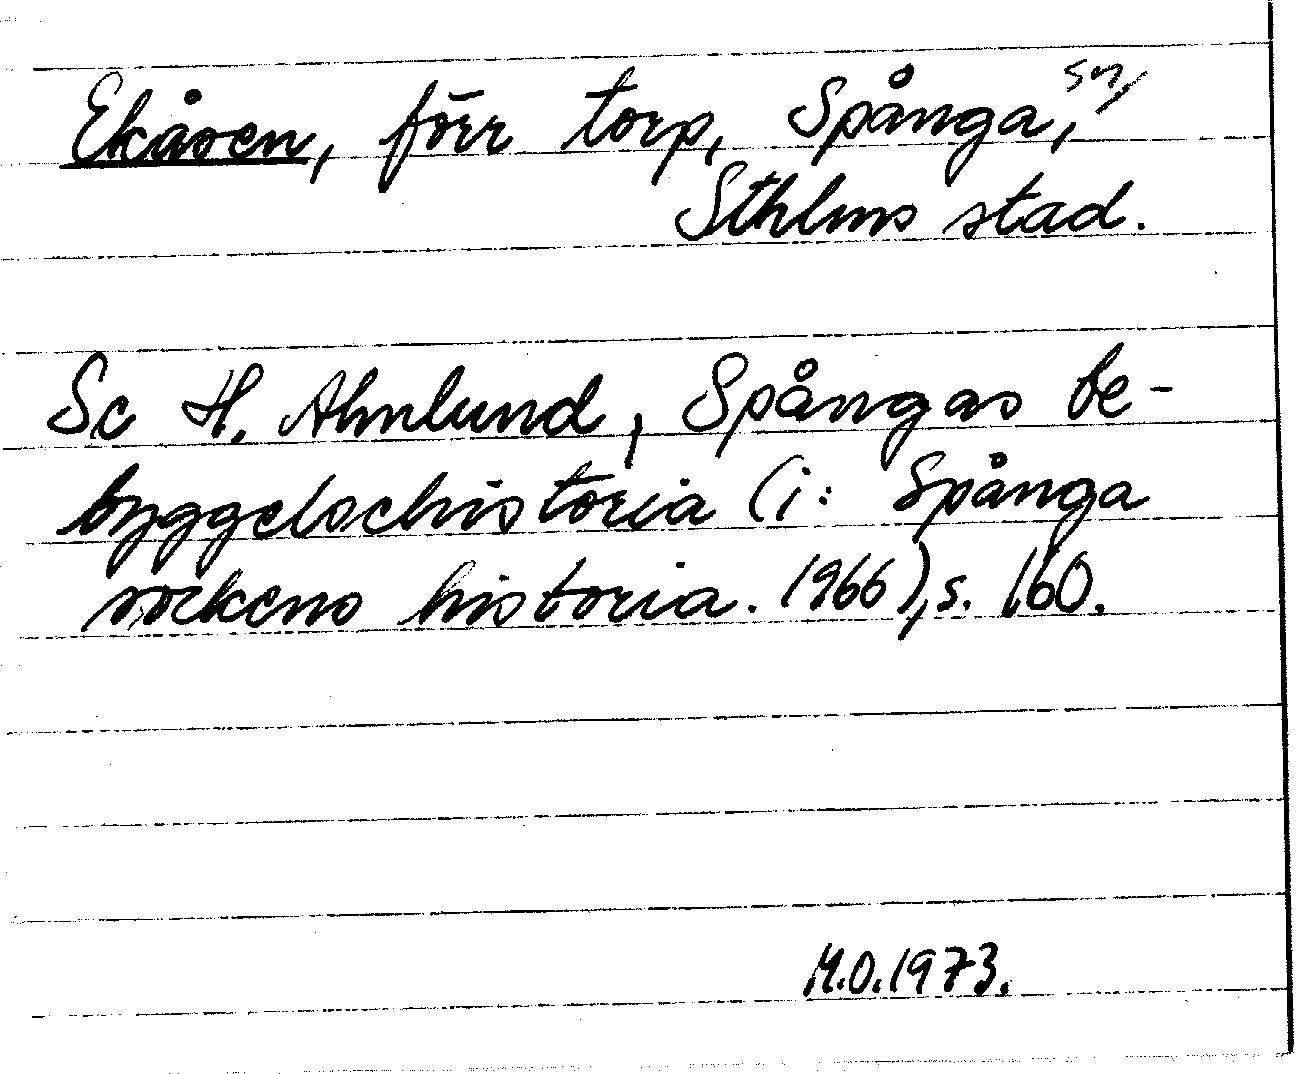 Ekåsen, förr torp, Spånga, sn,
Sthlms stad.
Se H. Ahnlund, Spångas be-
byggelsehistoria (i: Spånga
sockens historia. 1966), s. 160.
M.O.1973.